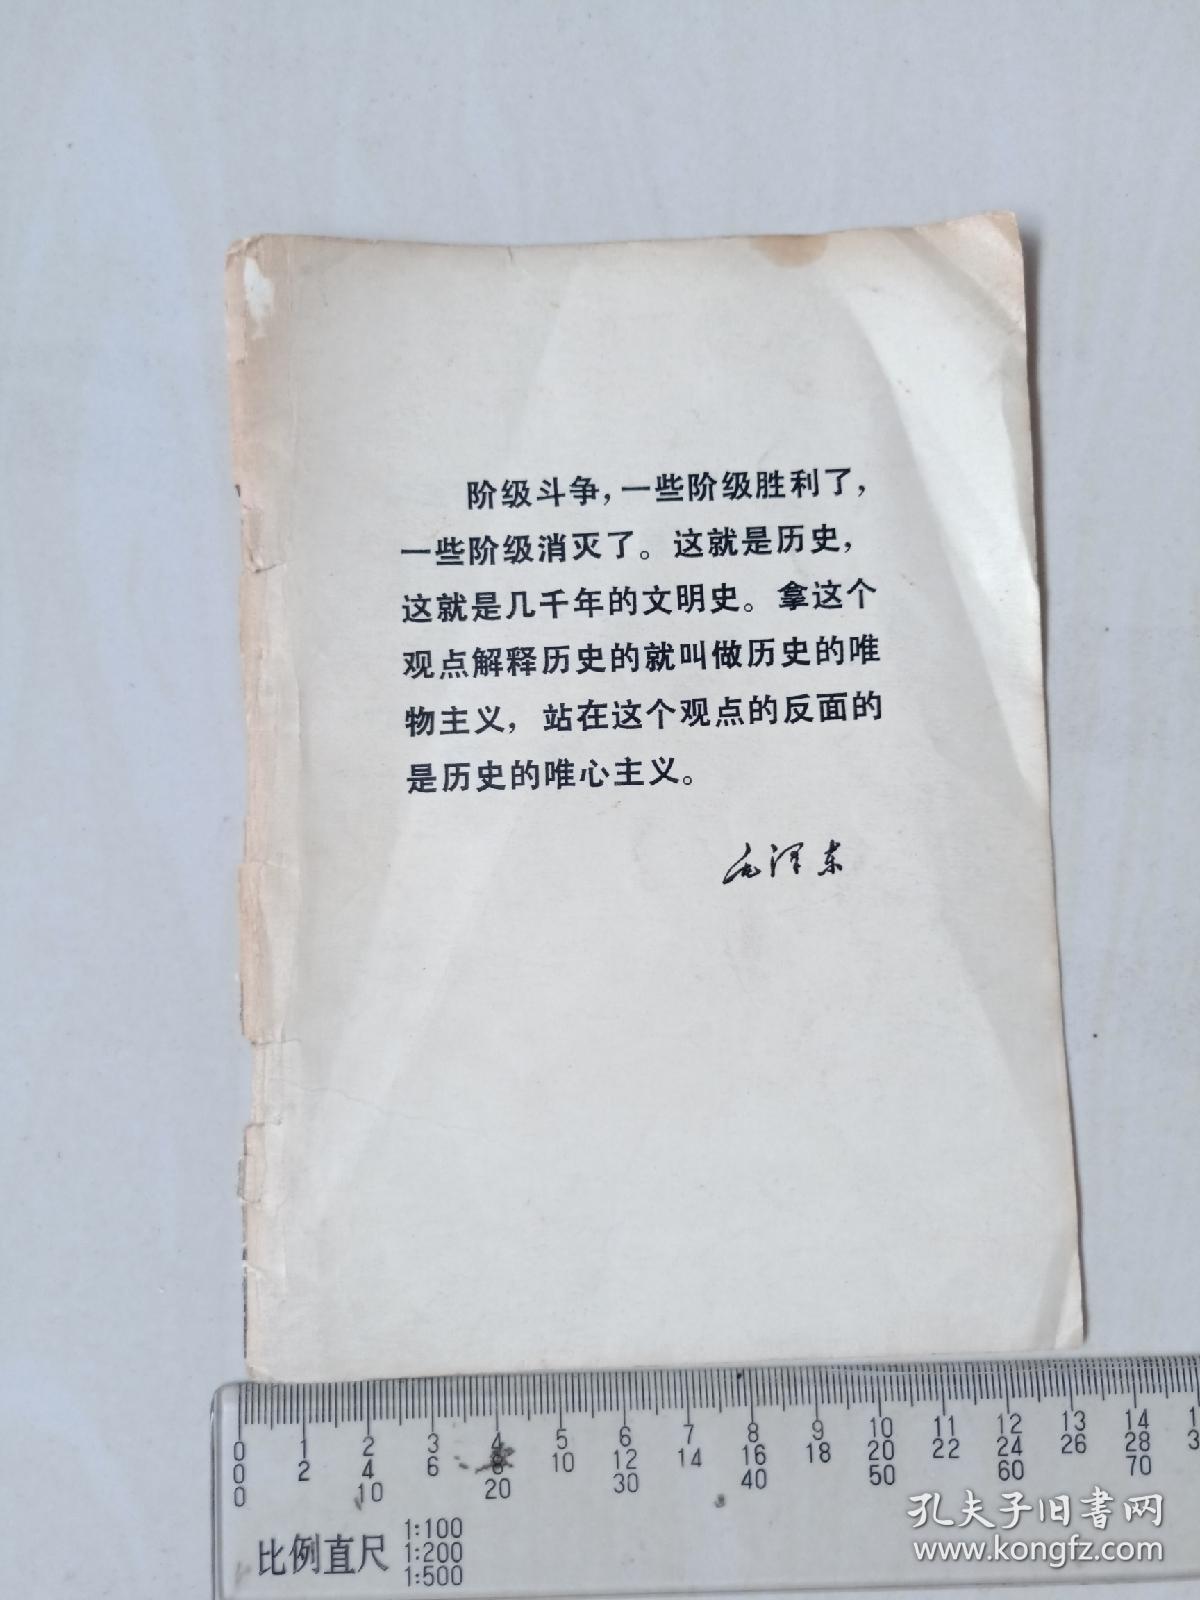 阶级斗争，一些阶级胜利了，
一些阶级消灭了。这就是历史，
这就是几千年的文明史。拿这个
观点解释历史的就叫做历史的唯
物主义，站在这个观点的反面的
是历史的唯心主义。
毛泽东
0 1 2 3 4 5 6 7 8 9 10 11 12 13 14 1
0 2 4 6 8 10 12 14 16 18 20 22 24 26 28 3
0 10 20 30 40 50 60 70
比例直尺
1:100
1:200
1:500
孔夫子旧书网
www.kongfz.com